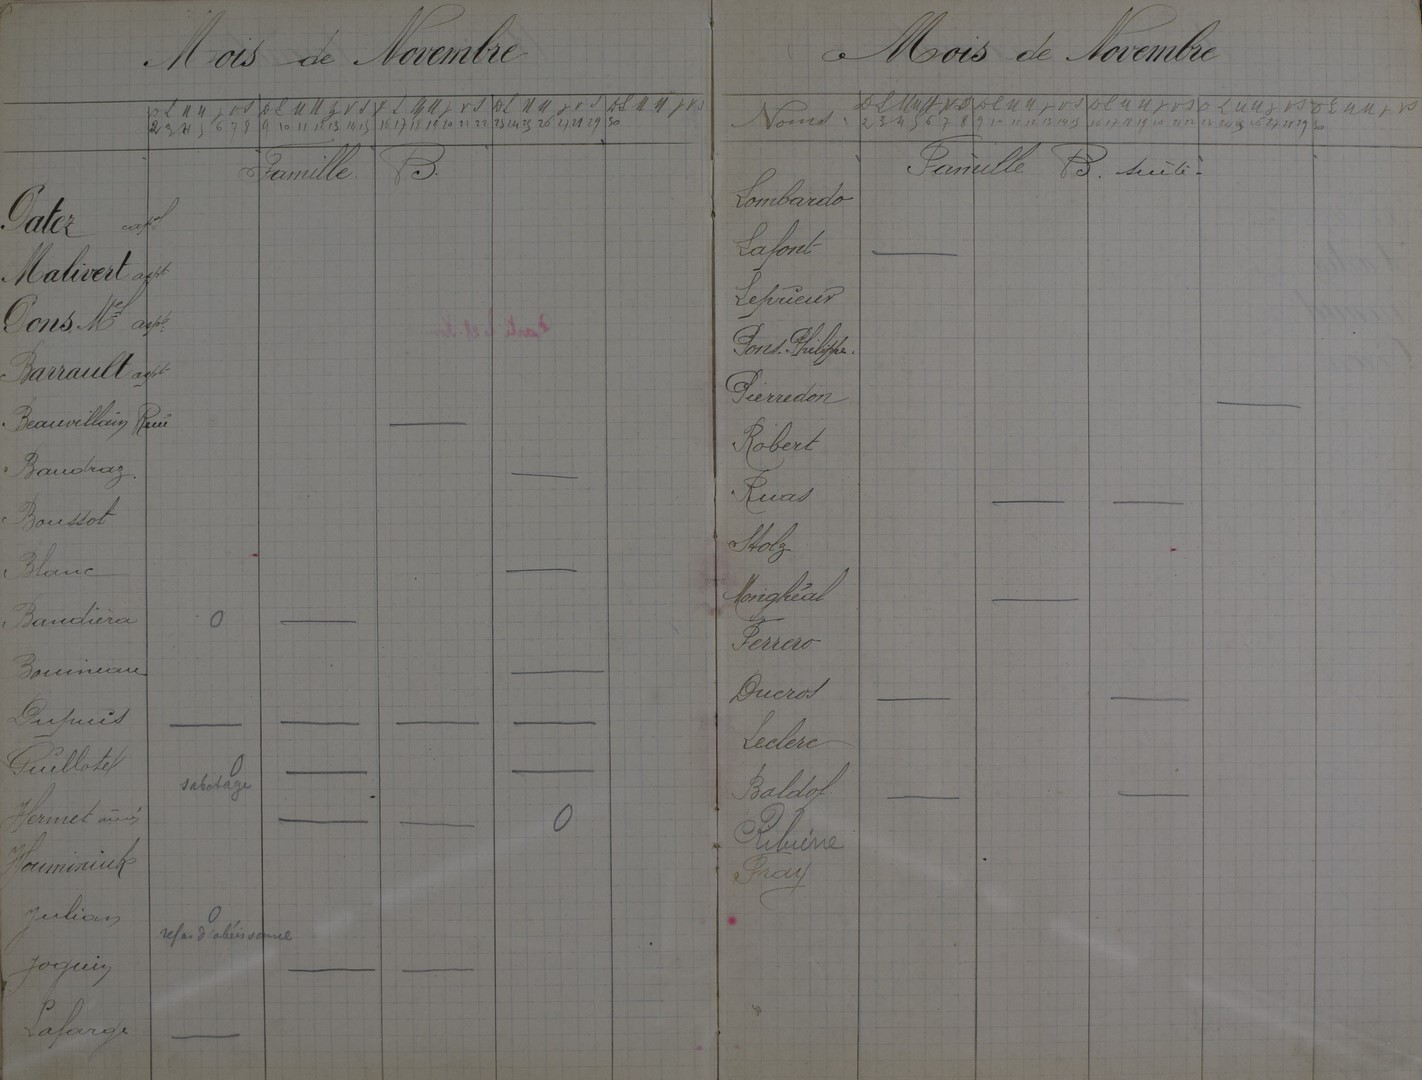 Mois de Novembre
D L M M J V S D L M M J V S D L M M J V S D L M M J V S D L M M J V S
2 3 4 5 6 7 8 9 10 11 12 13 14 15 16 17 18 19 20 21 22 23 24 25 26 27 28 29 30
Famille B.
Patez capl
Malivert aspt
Pons Mcel aspt
Barrault aspt
Beauvillain René
Baudraz
Boussot
Blanc
Bandiéra 0
Bouineau
Dupuis
Guillotel 0
sabotage
Hermet 0
Houminiuk
Julian 0
refus d'obéissance
Joquin
Lafarge
Mois de Novembre
Noms D L M M J V S D L M M J V S D L M M J V S D L M M J V S D L M M J V S
2 3 4 5 6 7 8 9 10 11 12 13 14 15 16 17 18 19 20 21 22 23 24 25 26 27 28 29 30
Famille B. suite
Lombardo
Lafont
Leprieur
Pons Philippe.
Pierredon
Robert
Ruas
Stolz
Monghéal
Ferrero
Ducros
Leclerc
Baldof
Ribière
Fray